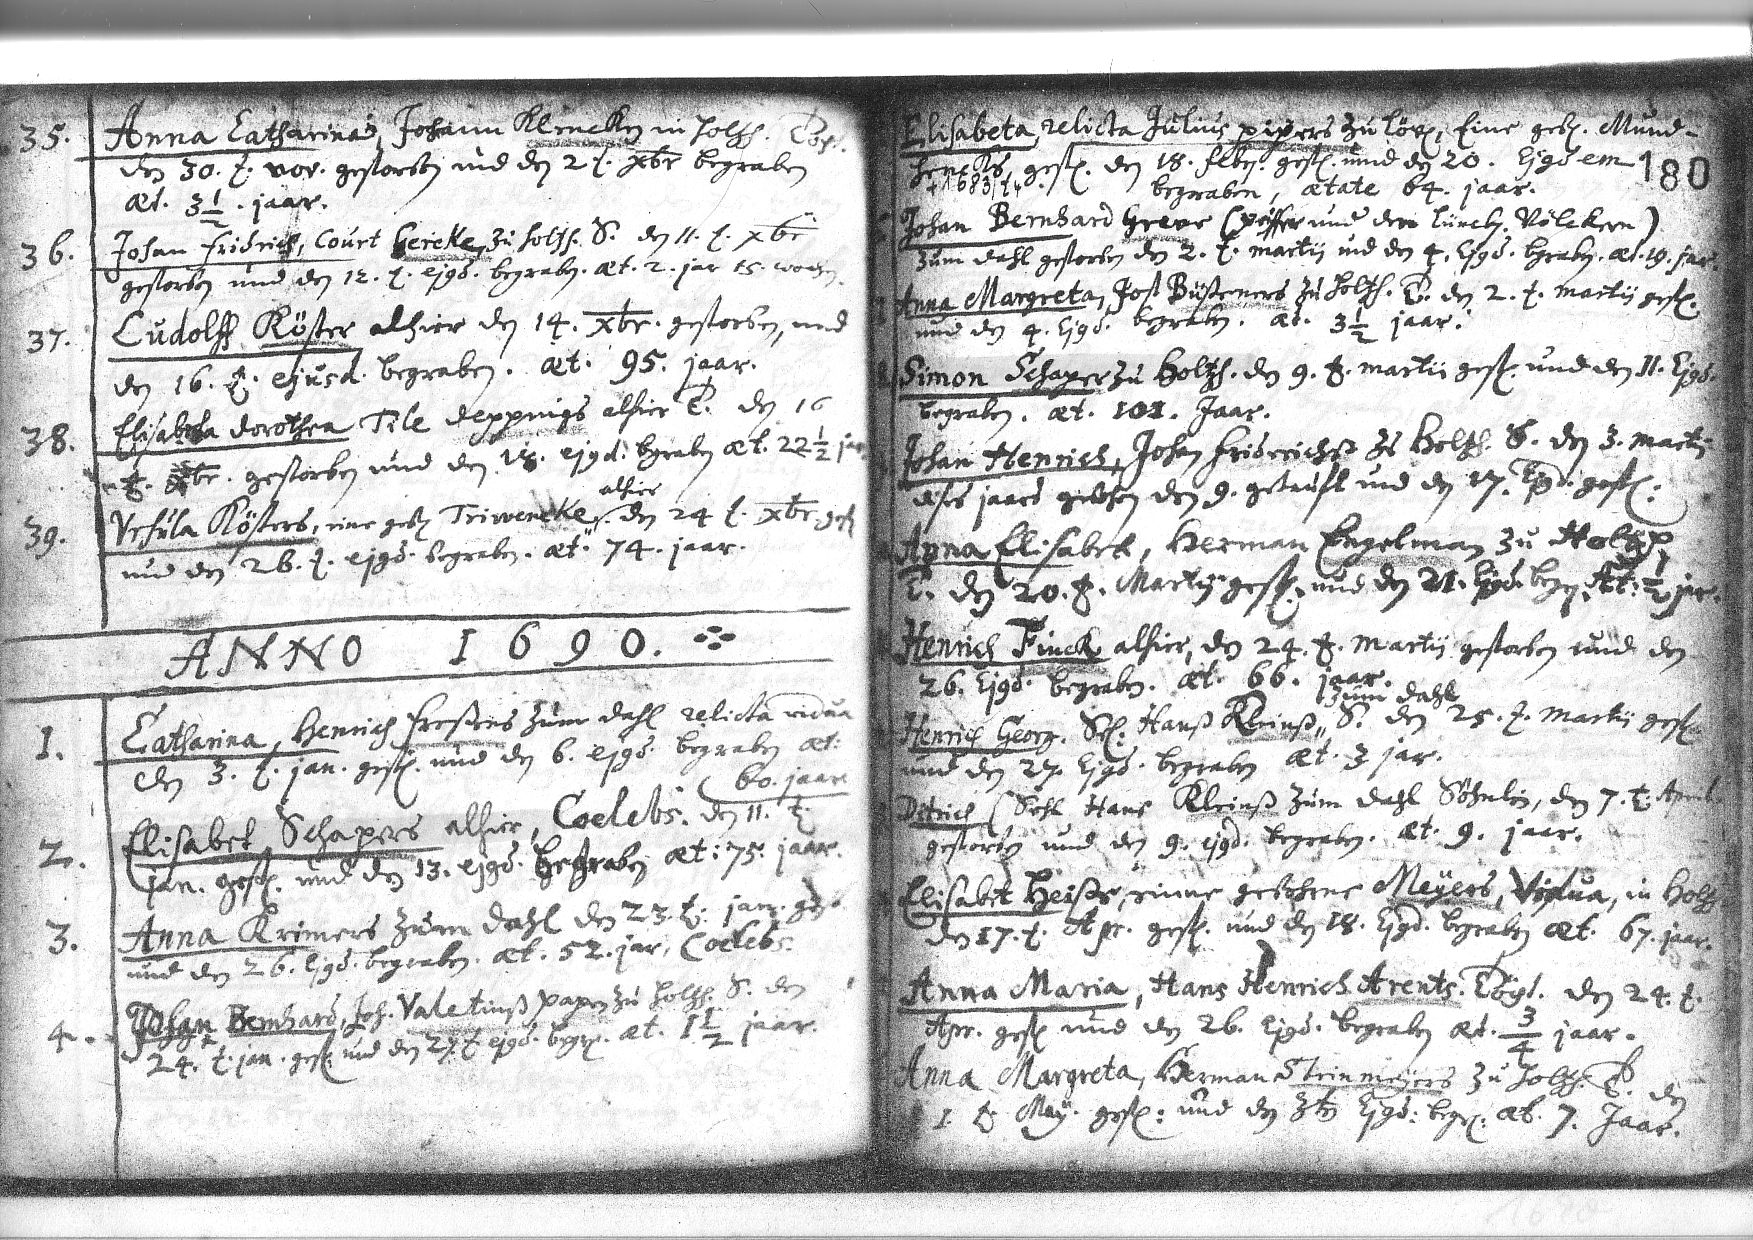 35. Anna Catharina, Johann Klencken in Holtzh. Töch.
den 30. t. nov. gestorben und den 2 t. xbr begraben
æt. 3½. jaar.
36. Johan Fridrich, Court Gereke zu Holtzh. S. den 11. t. xbr
gestorben und den 12. t. ejqs. begraben. æt. 2. jar 15. wochen.
37. Ludolff Köster alhier den 14. xbr. gestorben, und
den 16. t. ejusd. begraben. æt. 95. jaar.
38. Elisabeta dorothea Tile deppings alhier T. den 16
t. xbr. gestorben und den 18. ejqd. bgraben æt. 22½ jar
39. Vrsula Kösters, eine geb. Triweneke, alhier den 24 t. xbr. gest.
und den 26. t. ejqs. begraben. æt. 74. jaar.
ANNO 1690.
1. Catharina, Henrich Fresens zum dahl relicta vidua
den 3. t. jan. gest. und den 6. ejqs. begraben æt:
60. jaar
2. Elisabet Schapers alhier, Coelebs. den 11. t.
jan. gest. und den 13. ejqs. begraben æt: 75. jaar.
3. Anna Krimers zum dahl den 23. t. jan. gest.
und den 26. Ejqs. begraben. æt. 52. jar, Coelebs.
4. Johan Bernhard, Joh. Valetinß papen zu Holtzh. S. den
24. t. jan. gest. und den 27. t. ejqs. begr. æt. 1½ jaar.
Elisabeta, relicta Julius pipers zu, Eine geb. Mund-
henks, gest. den 18. febr. gest. und den 20. Ejqs em
180
begraben, ætate 64. jaar.
Johan Bernhard Greve (und den lüneb. Völckern)
zum dahl gestorben den 2. t. martij und den 4. Ejqs. bgraben. æt. 19. jar.
Anna Margreta, Jost Büsseners zu Holtzh. T. den 2. t. martij gest.
und den 4. Ejqs. bgraben. æt. 3½ jaar.
Simon Schaper zu Holtzh. den 9. t. martij gest. und den 11. Ejqs.
begraben. æt. 101. Jaar.
Johan Henrich, Johan Friderichß zu Holtzh. S. den 3. martij
dises jaars gebohren den 9. getauft und den 17. Ejqd. gest.
Anna Elisabet, Herman Engelman zu Holtzh.
T. den 20. t. Martij gest. und den 21. Ejqs. begr. Æt: ½ jar.
Henrich Finck alhier, den 24. t. martij gestorben und den
26. Ejqs. begraben. æt. 66. jaar.
Henrich Georg, Sel. Hanß Kleinß zum dahl S. den 25. t. martij gest.
und den 27. Ejqs. begraben æt. 3 jar.
Ditrich (Sehl Hans Kleinß zum dahl Söhnlein, den 7. t. April.
gestorben und den 9. ejqd. begraben. æt. 9. jaar.
Elisabet Heise, eine gebohrne Meÿers, Vidua, in Holtzh.
den 17. t. Apr. gest. und den 18. Ejqd. begraben æt. 67. jaar.
Anna Maria, Hans Henrich Arents. Tögt. den 24. t.
Apr. gest. und den 26. Ejqs. begraben æt. ¾ jaar.
Anna Margreta, Herman Steinmeÿers zu Holtzh. T. den
1. t. Maÿ. gest. und den 3ten Ejqs. begr. æt. 7. Jaar.